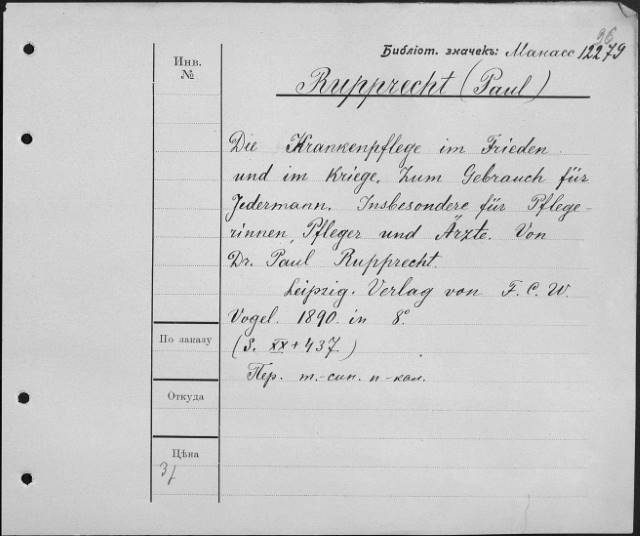 96
Библіот. значекъ: Манасс 12279
Инв.
№
Rupprecht (Paul)
Die Krankenpflege im Frieden
und im Kriege. Zum Gebrauch für
Jedermann. Insbesondere für Pflege-
rinnen, Pfleger und Ärzte. Von
Dr. Paul Rupprecht.
Leipzig. Verlag von F. C. W.
Vogel. 1890. in 8°.
(S. XX + 437.)
Пер. т.-син. п-кол.
По заказу
Откуда
Цѣна